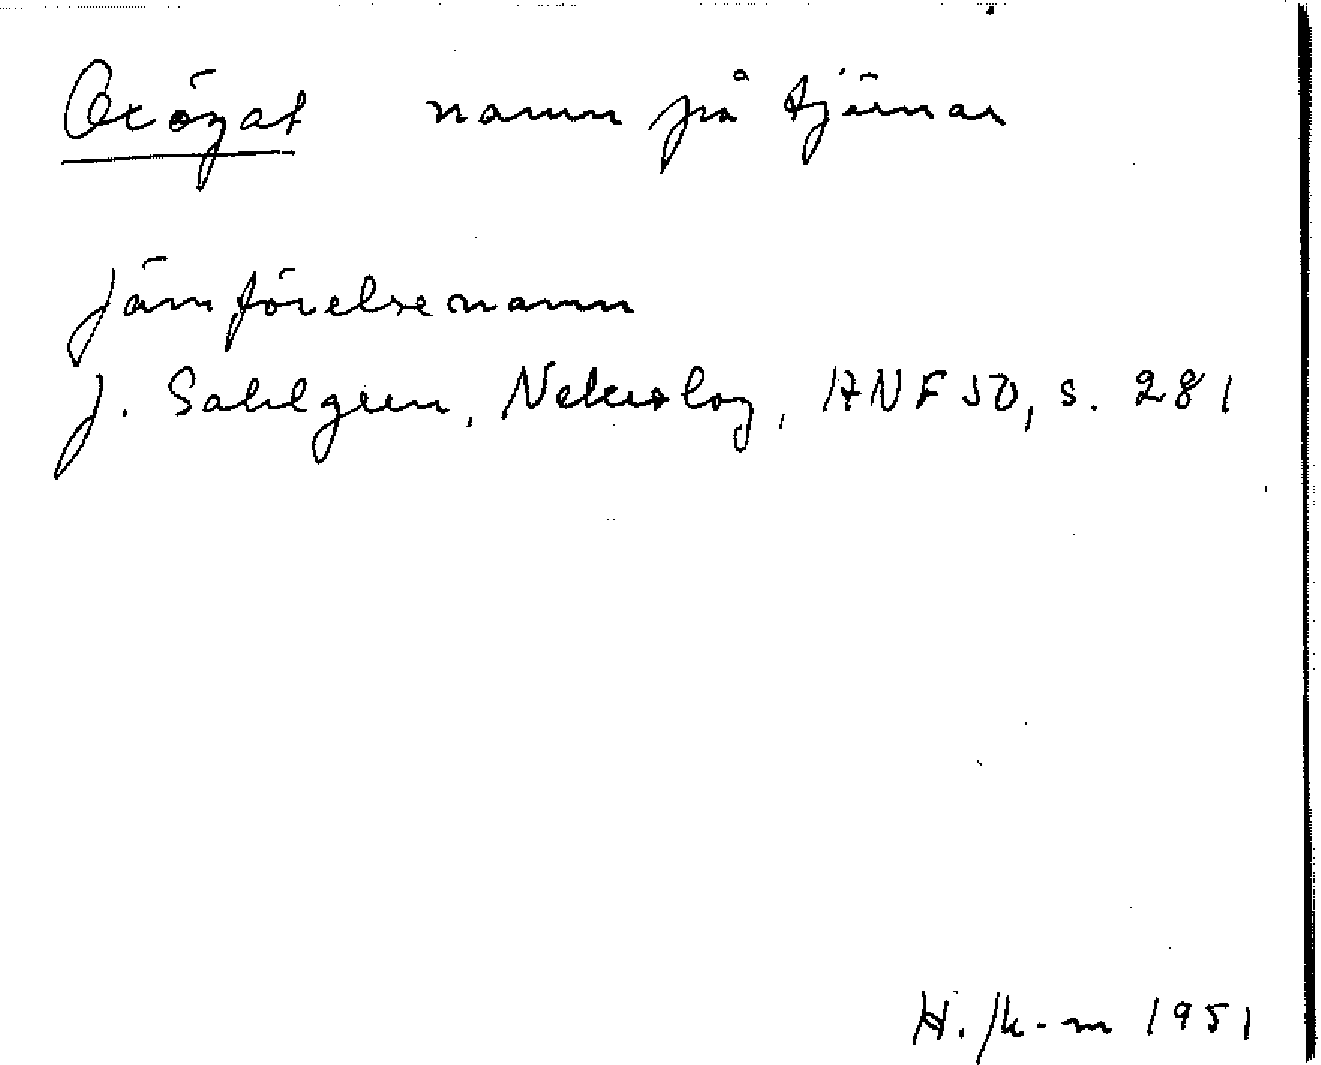 Oxögat namn på tjärnar
Jämförelsenamn
J. Sahlgren, Nekrolog, ANF 50, s. 281
H. 1951